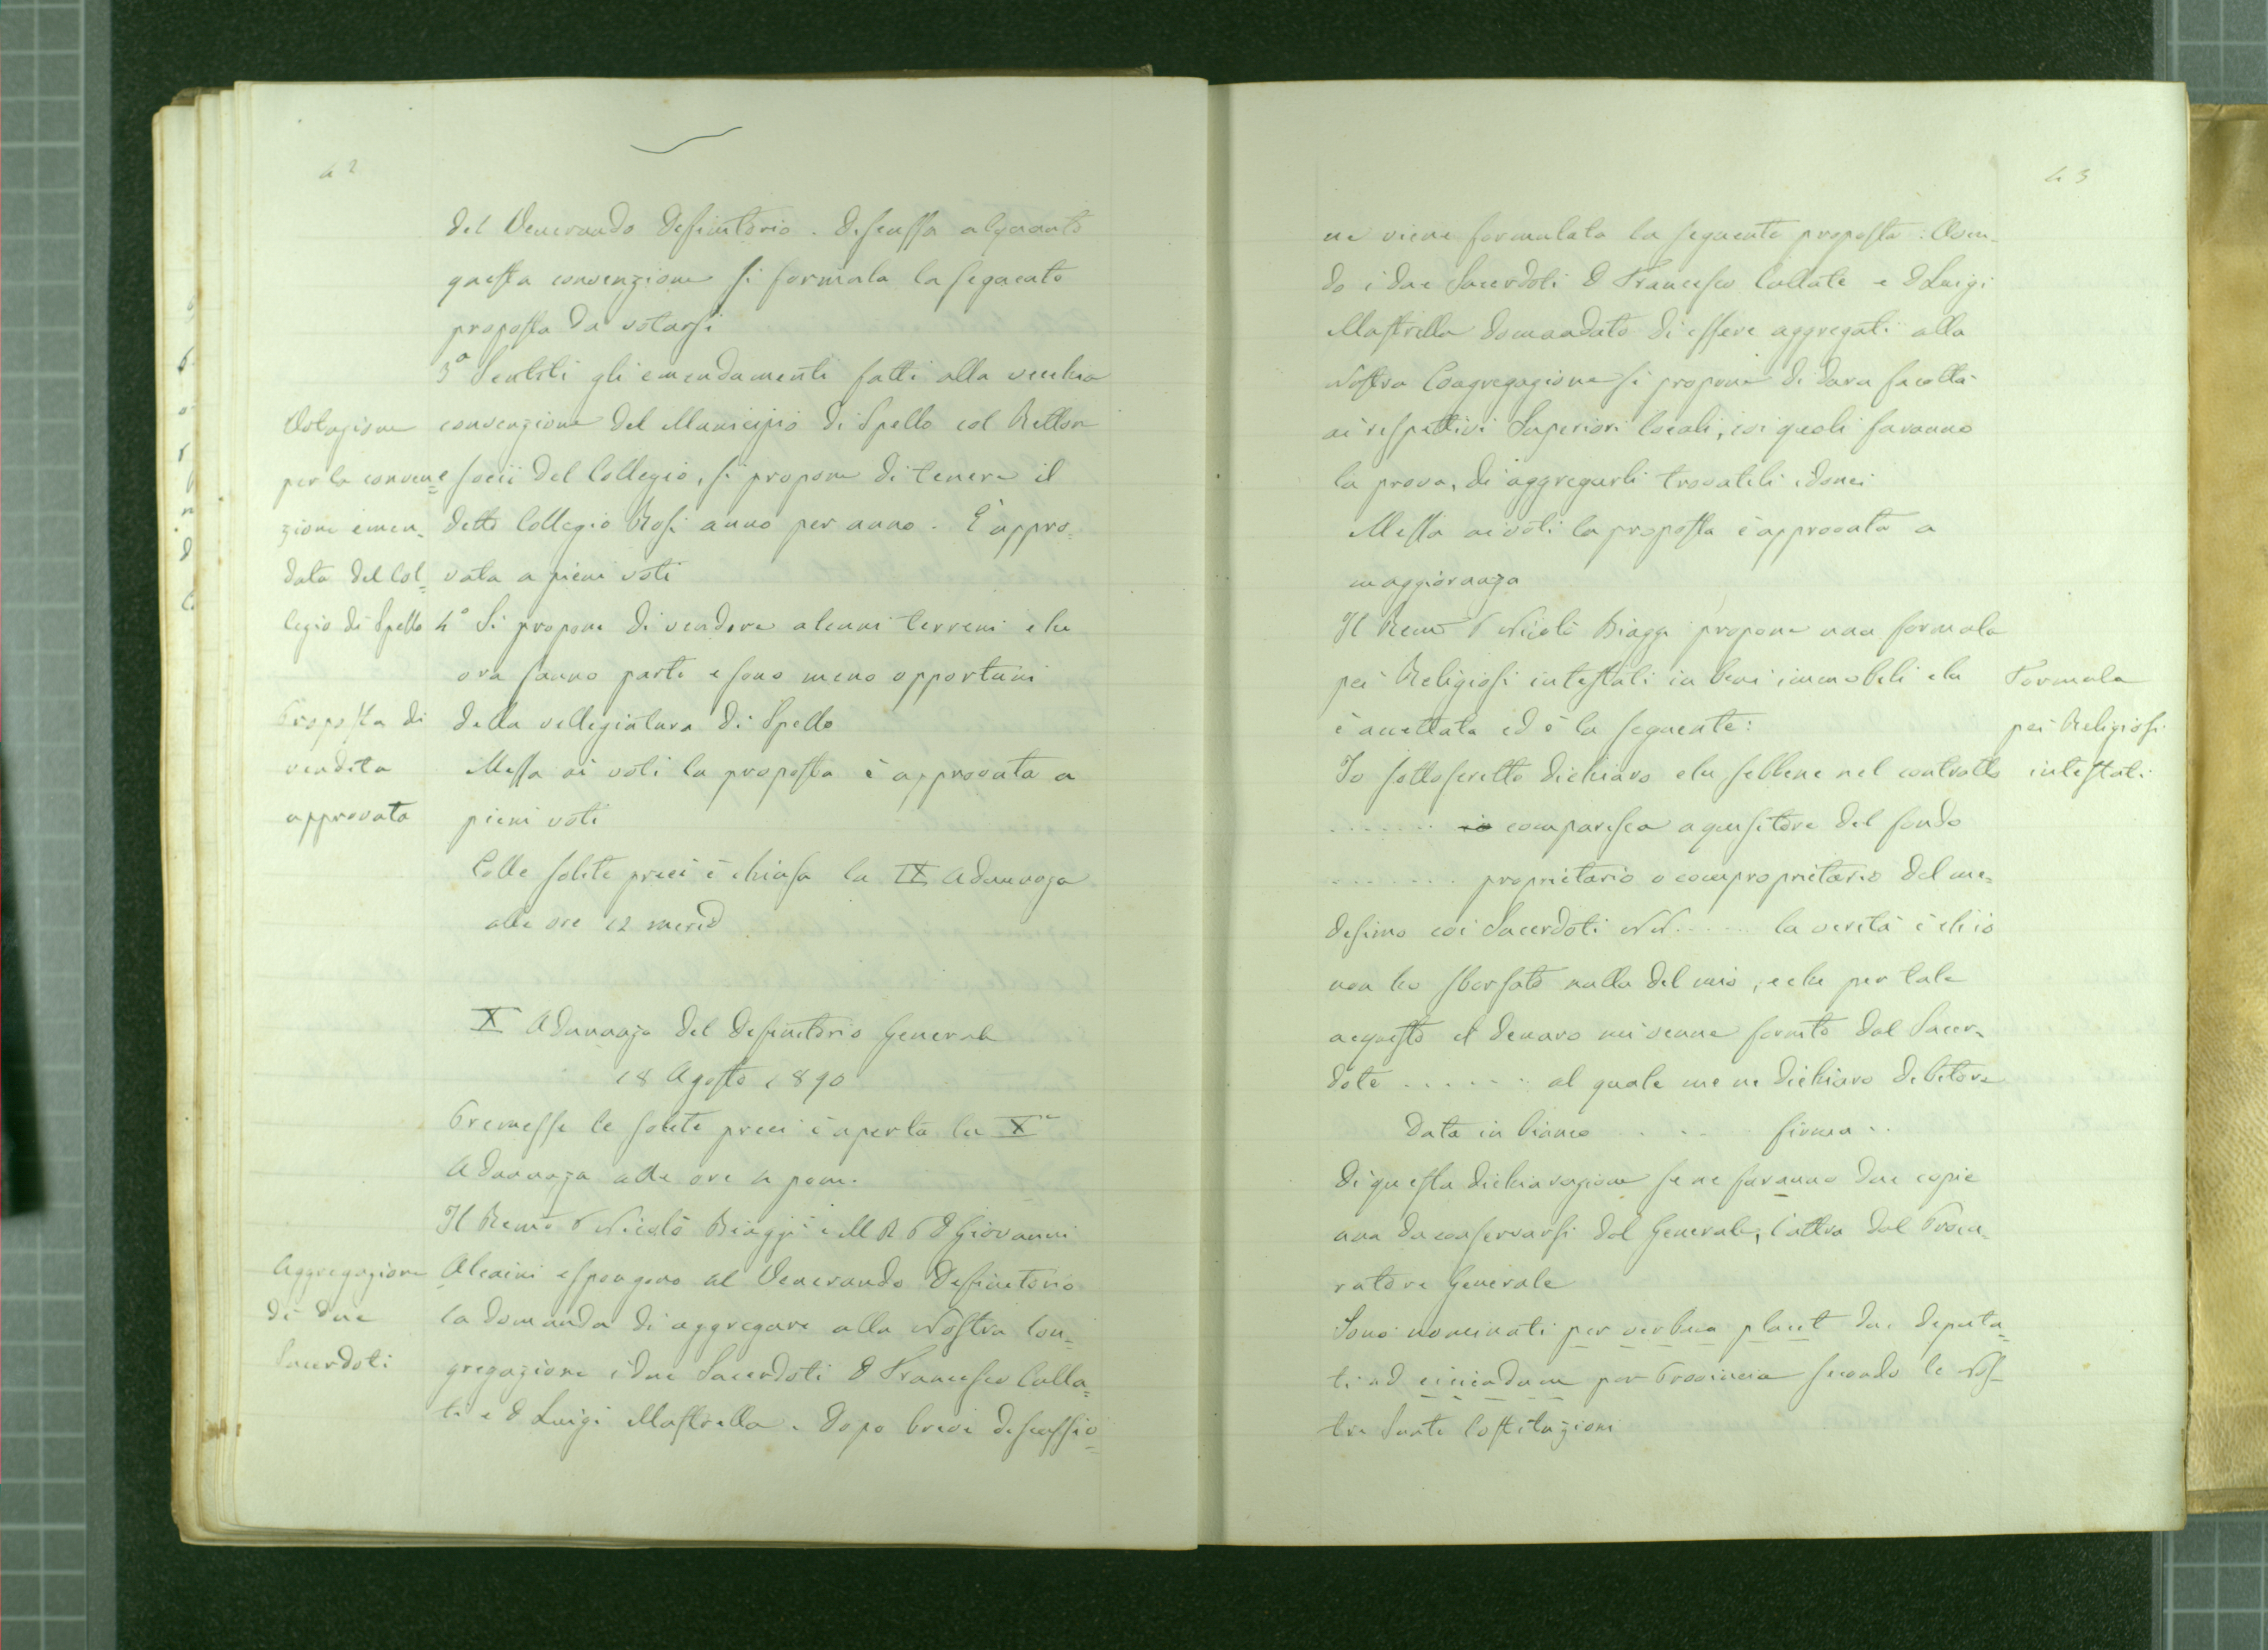 42
del Venerando Definitorio. Discussa alquanto
questa convenzione si formula la seguente
proposta da votarsi
3° Sentiti gli emendamenti fatti alla vecchia
convenzione del Municipio di Spello col Rettore
e socii del Collegio, si propone di tenere il
detto Collegio Rosi anno per anno. È appro=
vata a pieni voti
Votazione
per la conven=
zione emen=
data del Col=
legio di Spello
4° Si propone di vendere alcuni terreni che
ora fanno parte e sono meno opportuni
della villegiatura di Spello
Messa ai voti la proposta è approvata a
pieni voti
Proposta di
vendita
approvata
Colle solite preci è chiusa la IX Adunanza
alle ore 12 merid
X Adunanza del Definitorio Generale
18 Agosto 1890
Premesse le solite preci è aperta la Xa
Adunanza alle ore 4 pom.
Il Remo P Nicolò Biaggi e il M R P D Giovanni
Alcaini espongono al Venerando Definitorio
la domanda di aggregare alla Nostra Con=
gregazione i due Sacerdoti D Francesco Calla=
te e D Luigi Mastrella. Dopo breve discussio=
Aggregazione
di due
Sacerdoti
43
ne viene formulata la seguente proposta: Aven=
do i due Sacerdoti D Francesco Callate e D Luigi
Mastrella domandato di essere aggregati alla
Nostra Congregazione si propone di dare facoltà
ai rispettivi Superiori locali, coi quali faranno
la prova, di aggregarli trovatili idonei
Messa ai voti la proposta è approvata a
maggioranza
Il Remo P Nicolò Biaggi propone una formola
pei Religiosi intestati in beni immobili che
è accettata ed è la seguente:
Formula
pei Religiosi
intestati
Io sottoscritto dichiaro che sebbene nel contratto
....... io comparisca aquisitore del fondo
....... proprietario o comproprietario del me=
desimo coi Sacerdoti NN..... la verità è ch'io
non ho sborsato nulla del mio, e che per tale
acquisto il denaro mi venne fornito dal Sacer=
dote ...... al quale me ne dichiaro debitore
Data in bianco .... firma..
Di questa dichiarazione se ne faranno due copie
una da conservarsi dal Generale, l'altra dal Procu=
ratore Generale
Sono nominati per verbum placet due deputa=
ti ad per Provincia secondo le Nos=
tre Sante Costituzioni